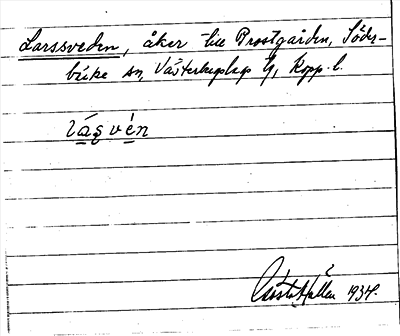 Larssveden, åker till Prostgården, Söder-
bärke sn, Västerbergslags tg, Kopp. l.
lásvén
Gösta Hallén 1934.